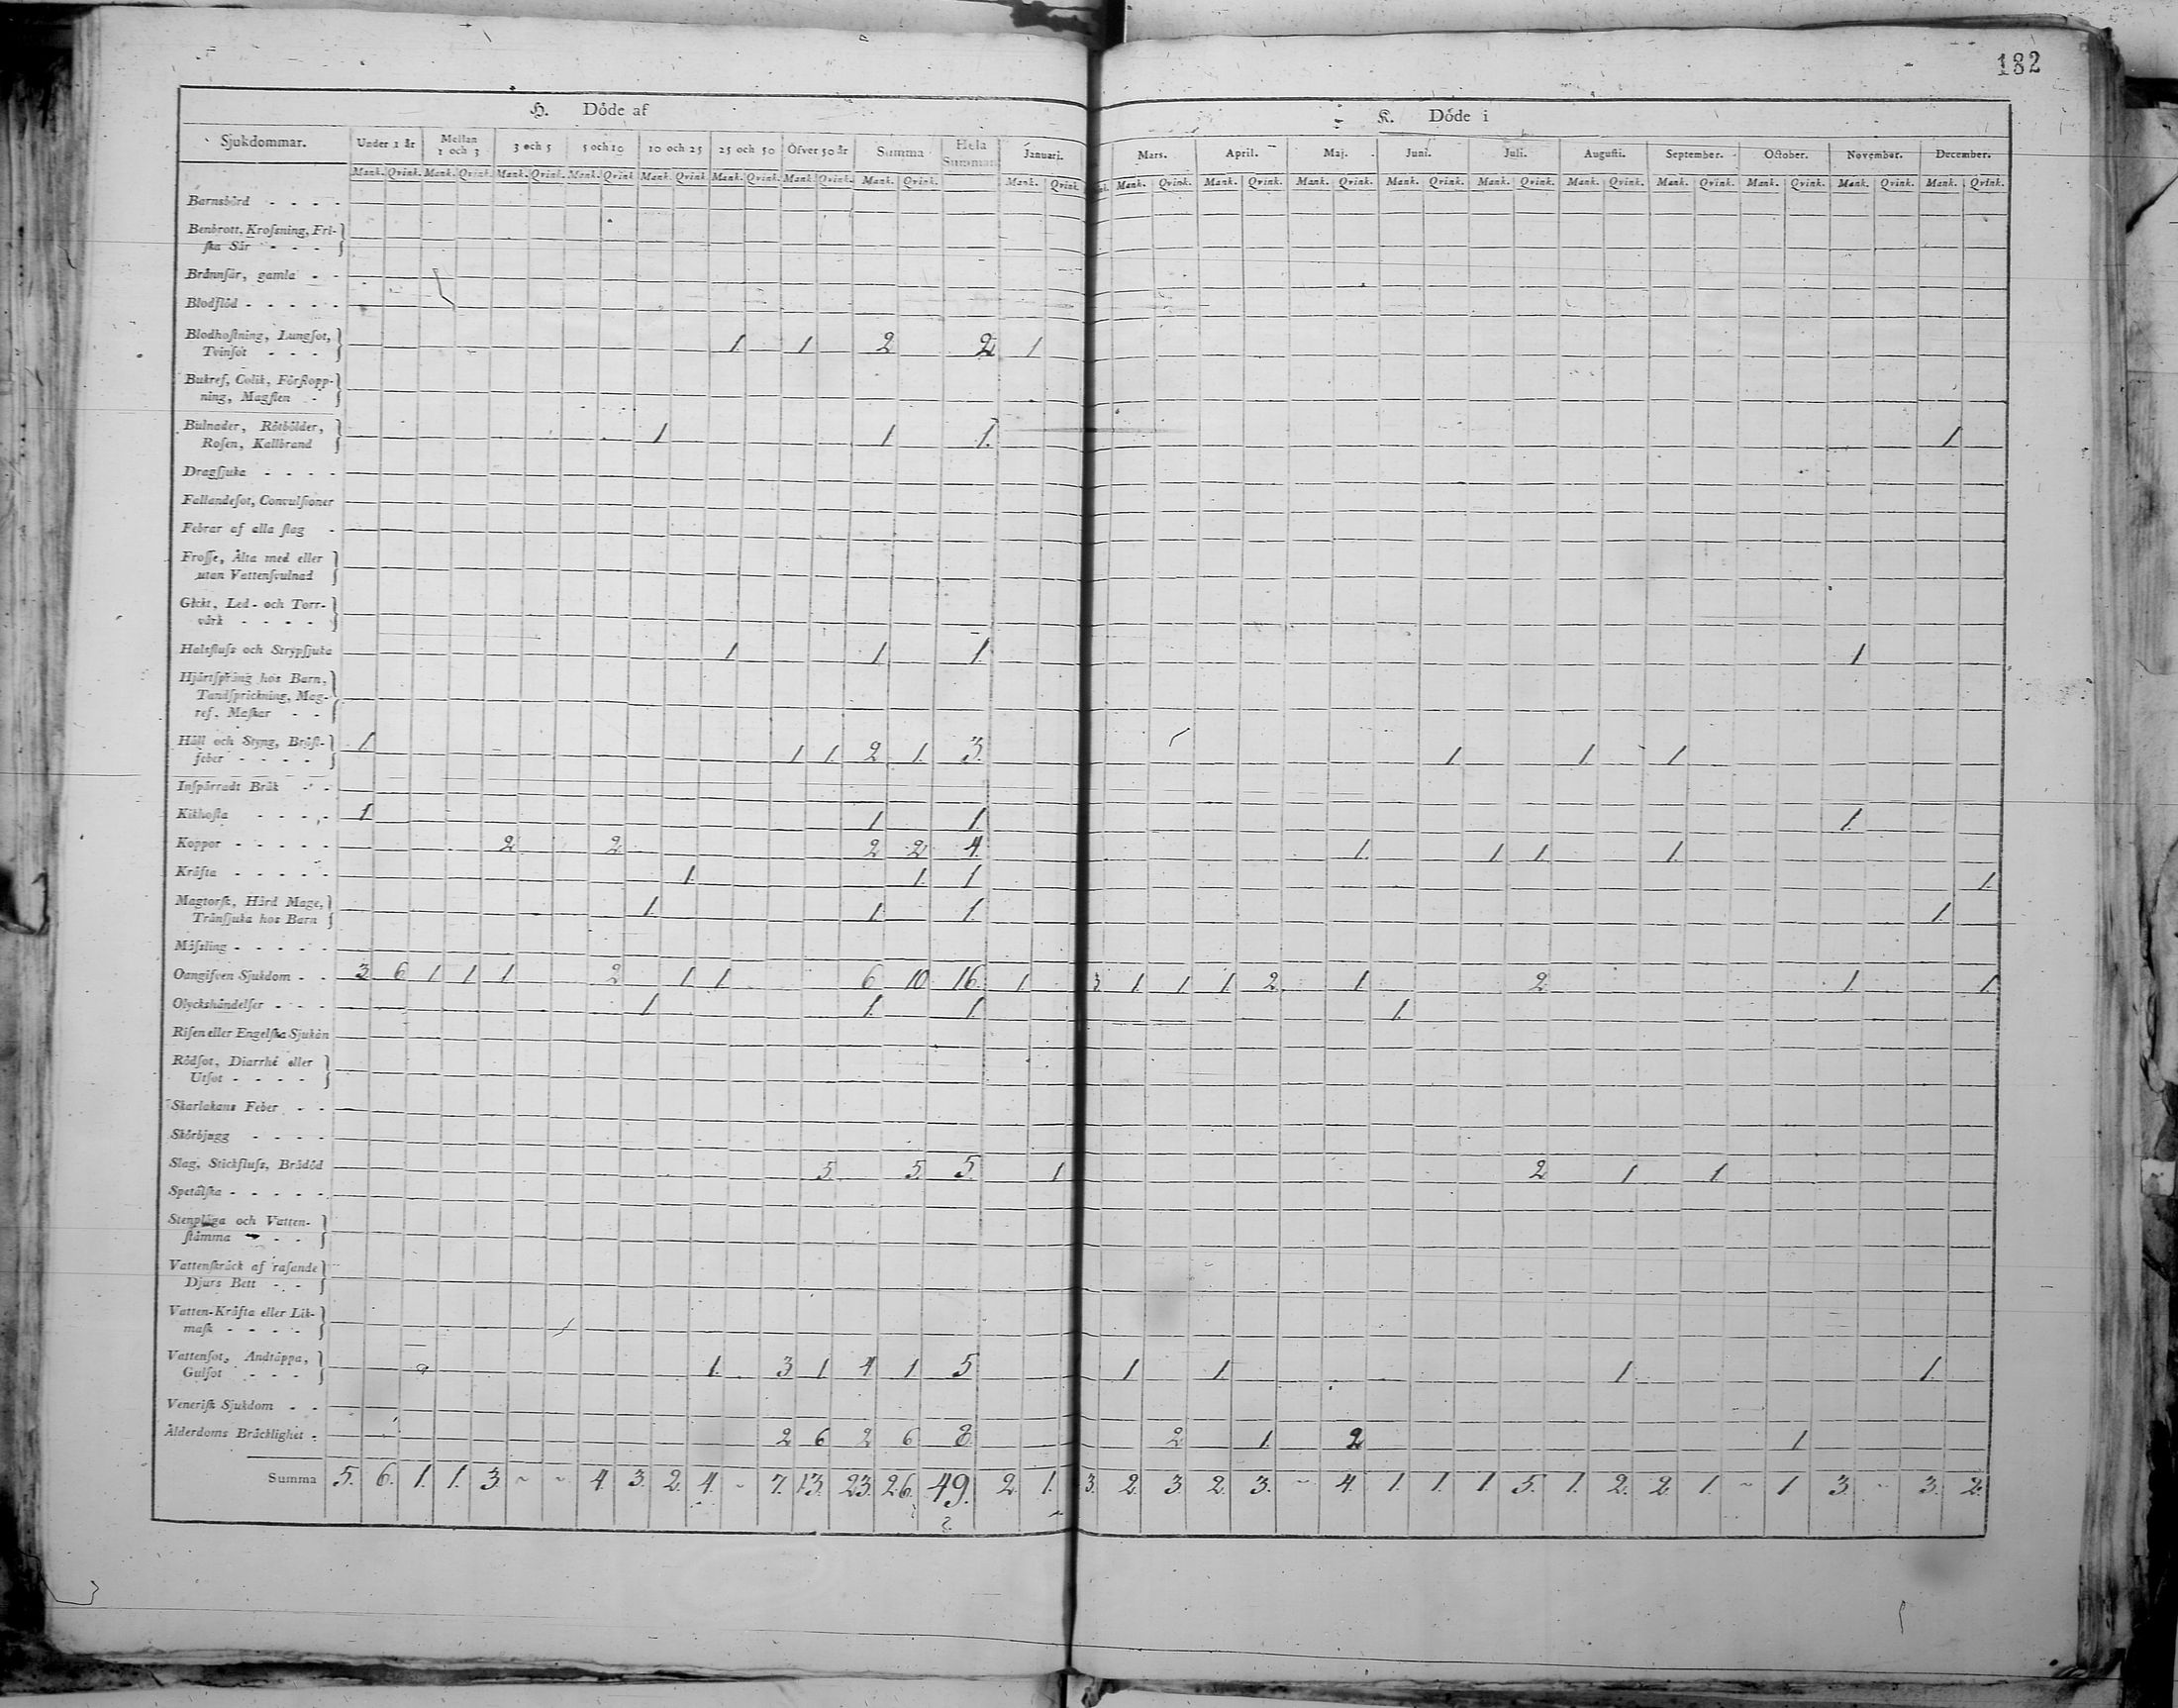 182
H. Döde af
K. Döde i
Sjukdommar. Under 1 år Mellan 1 och 3 3 och 5 5 och 10 10 och 25 25 och 50 Öfver 50 år Summa Hela Summan Januari. Mars. April. Maj. Juni. Juli. Augusti. September. October. November. December.
Mank. Qvink. Mank. Qvink. Mank. Qvink. Mank. Qvink. Mank. Qvink. Mank. Qvink. Mank. Qvink. Mank. Qvink. Mank. Qvink. Mank. Qvink. Mank. Qvink. Mank. Qvink. Mank. Qvink. Mank. Qvink. Mank. Qvink. Mank. Qvink. Mank. Qvink. Mank. Qvink. Mank. Qvink.
Barnsbörd - - - -
Benbrott, Krosning, Fri-
ska Sår - - -
Brännsår, gamla - -
Blodflöd - - - - -
Blodhostning, Lungsot,
Tvinsot - - - 1 1 2 2 1
Bukref, Colik, Förstopp-
ning, Magsten -
Bulnader, Rötbölder,
Rosen, Kallbrand 1 1 1. 1
Dragsjuka - - - -
Fallandesot, Convulsioner
Febrar af alla slag -
Frosse, Älta med eller
utan Vattensvulnad
Gickt, Led- och Torr-
värk - - - -
Halsfluss och Strypsjuka 1 1 1 1
Hjärtspräng hos Barn,
Tandsprickning, Mag-
ref, Maskar - -
Håll och Styng, Bröst-
feber - - - - 1 1 1. 2 1. 3. 1 1 1
Inspärradt Bråk - -
Kikhosta - - - - 1 1 1. 1.
Koppor - - - - - 2 2 2 2 4. 1. 1 1 1.
Kräfta - - - - - 1. 1. 1 1.
Magtorsk, Hård Mage,
Tränsjuka hos Barn 1. 1. 1. 1.
Mässling - - - - -
Oangifven Sjukdom - - 3 6 1 1 1 2 1 1 6 10 16. 1 3 1. 1 1 2. 1 2 1 1
Olyckshändelser - - - 1 1. 1 1.
Risen eller Engelska Sjukan
Rödsot, Diarrhé eller
Utsot - - - -
Skarlakans Feber - -
Skörbjugg - - - -
Slag, Stickfluss, Brådöd 5. 5. 5. 1 2 1 1
Spetälska - - - - -
Stenplåga och Vatten-
stämma - - -
Vattenskräck af rasande
Djurs Bett - -
Vatten-Kräfta eller Lik-
mask - - - -
Vattensot, Andtäppa,
Gulsot - - - 1. 3 1 4 1 5 1 1 1 1.
Venerisk Sjukdom - -
Ålderdoms Bräcklighet - 2 6 2 6 8. 2 1. 2 1
Summa 5. 6. 1. 1. 3. ~ ~ 4. 3. 2. 4. ~ 7. 13. 23. 26. 49. 2. 1. 3. 2. 3. 2. 3. ~ 4. 1. 1. 1. 5. 1. 2. 2. 1. ~ 1. 3. ~ 3. 2.